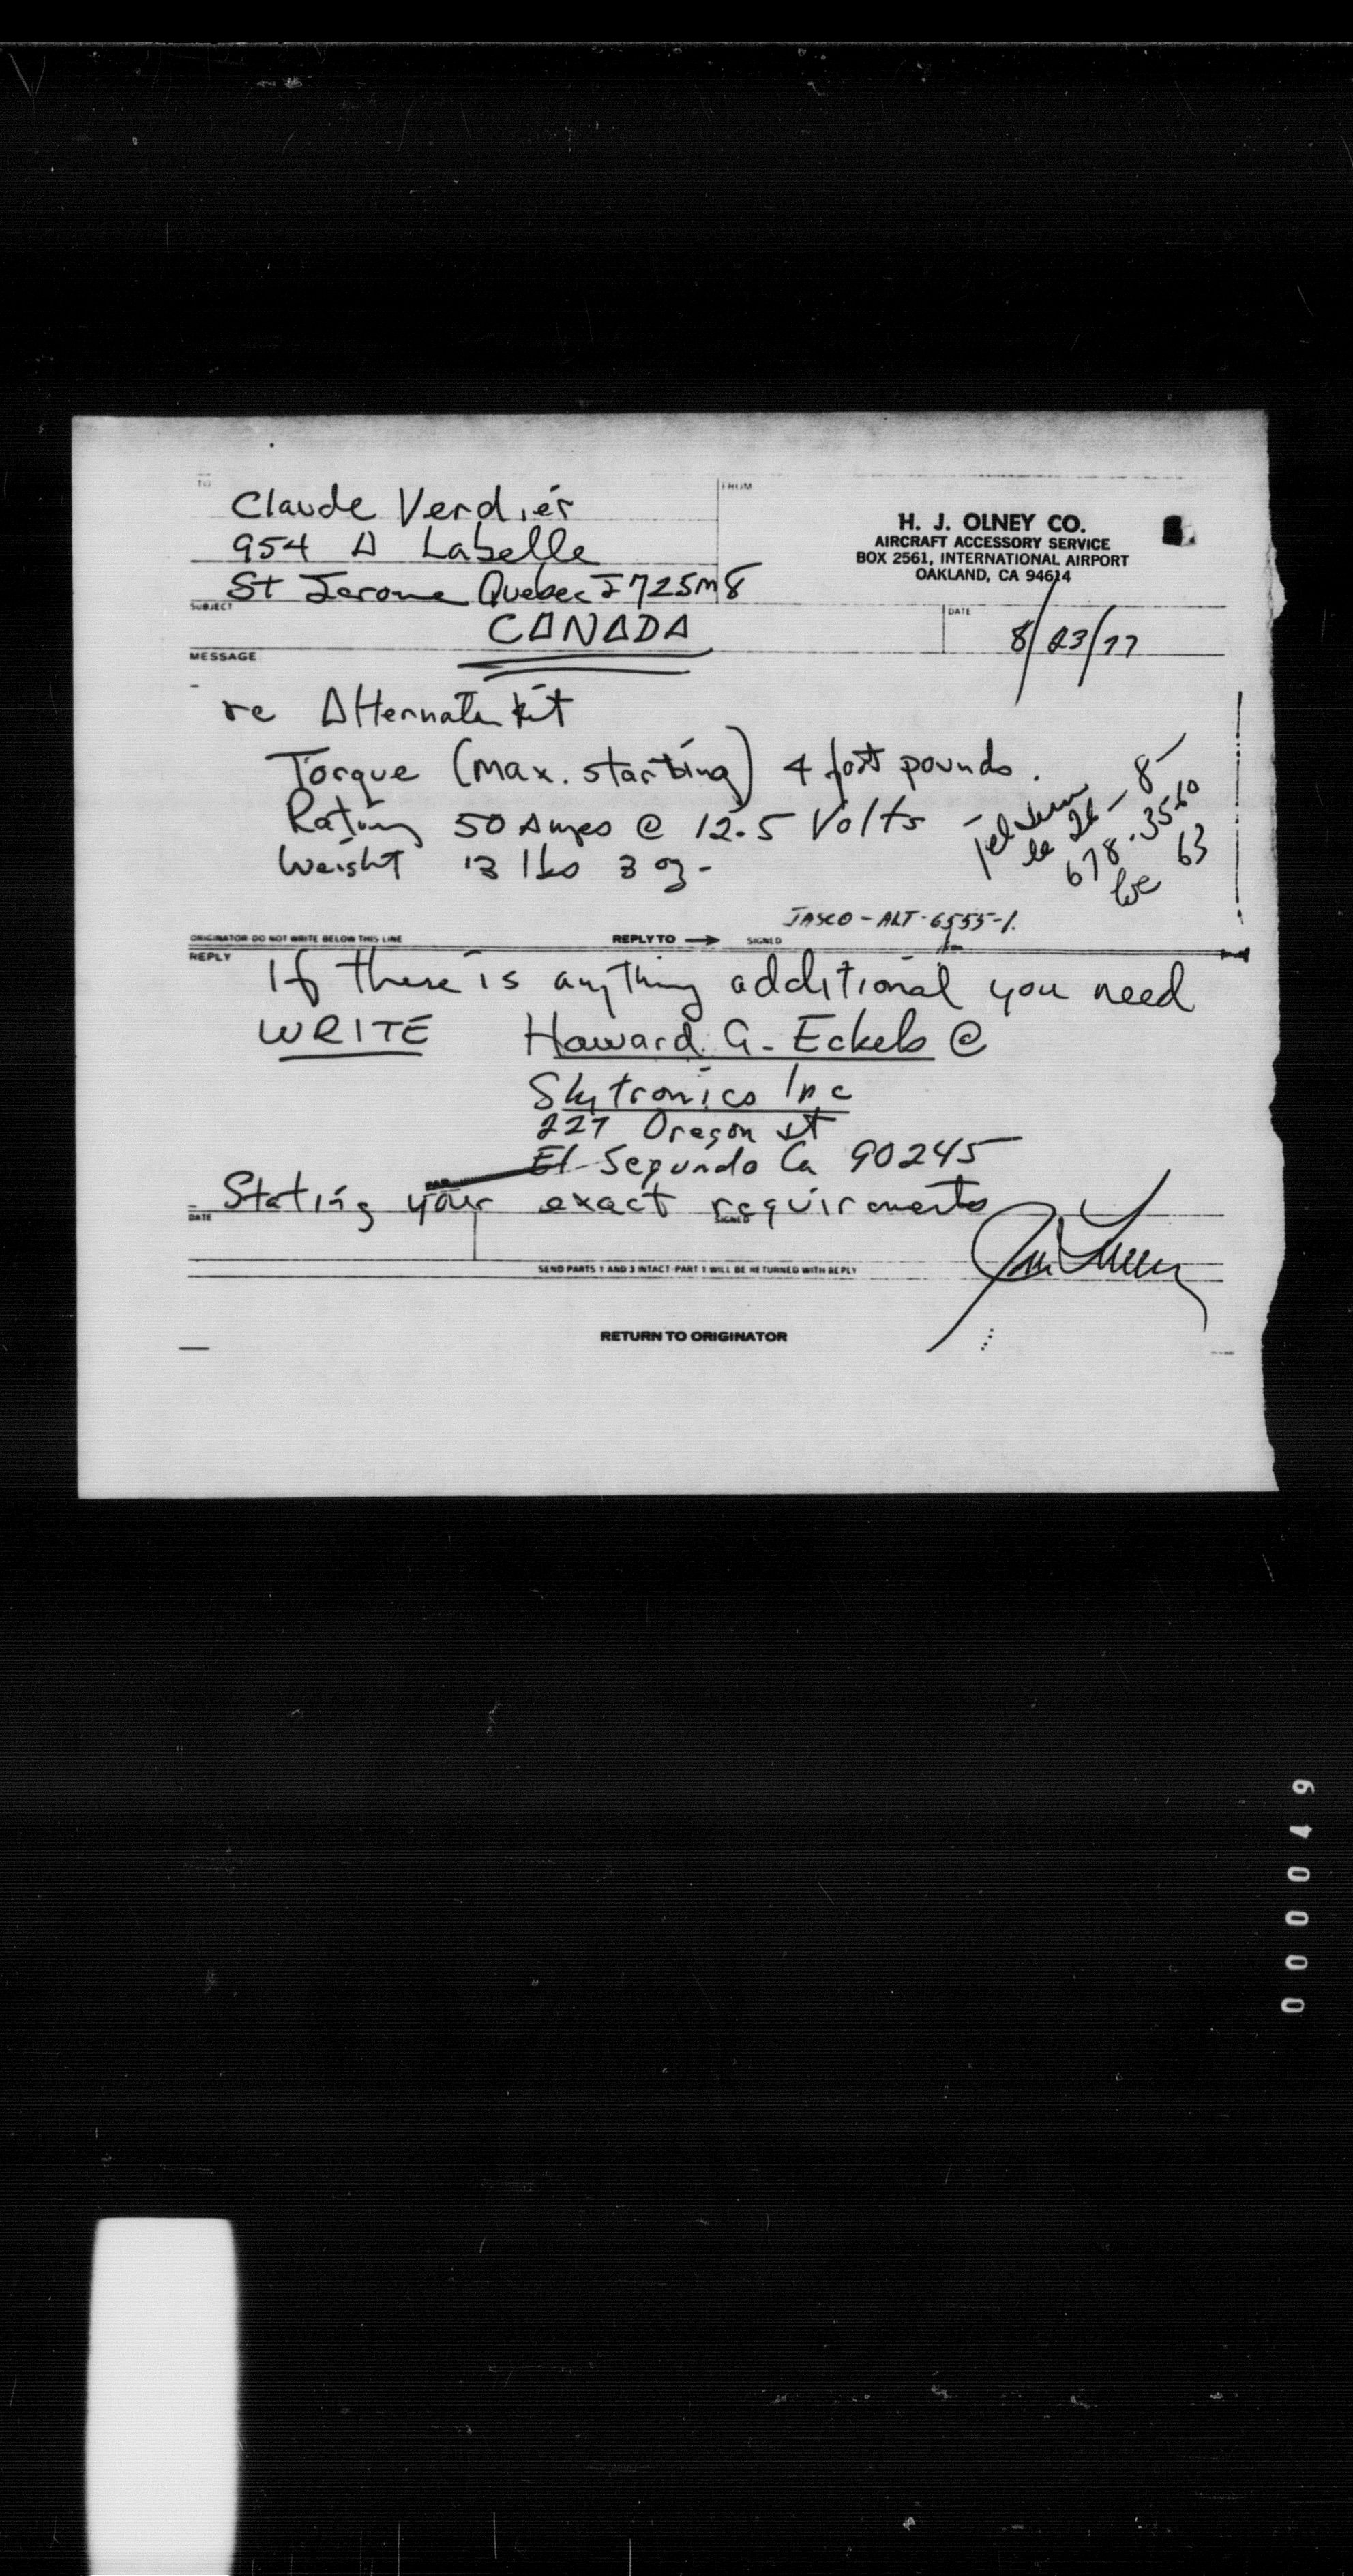 TO
Claude Verdier
954 A Labelle
St Jerome Quebec J725M8
CANADA
FROM
H. J. OLNEY CO.
AIRCRAFT ACCESSORY SERVICE
BOX 2561, INTERNATIONAL AIRPORT
OAKLAND, CA 94614
SUBJECT
DATE
8/23/77
MESSAGE
re Alternator kit
Torque (max. starting) 4 foot pounds.
Rating 50 Amps @ 12.5 Volts
Weight 13 lbs 3 oz-
le 26-8-
678-3560
63
JASCO-ALT-6555-1.
ORIGINATOR-DO NOT WRITE BELOW THIS LINE
REPLY TO → SIGNED
REPLY
If there is anything additional you need
WRITE Howard G. Eckels @
Skytronics Inc
227 Oregon St
El Segundo Ca 90245
Stating your exact requirements
DATE
SIGNED
SEND PARTS 1 AND 3 INTACT-PART 1 WILL BE RETURNED WITH REPLY
RETURN TO ORIGINATOR
000049